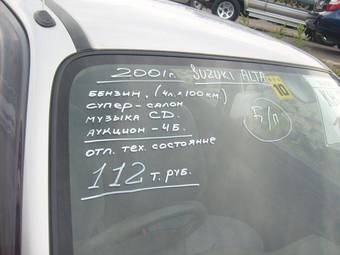 2001г. SUZUKI ALTO
БЕНЗИН. (4л. х 100км)
СУПЕР-САЛОН
МУЗЫКА CD.
АУКЦИОН-4Б.
ОТЛ. ТЕХ. СОСТОЯНИЕ
112 Т. РУБ.
10
Б/П